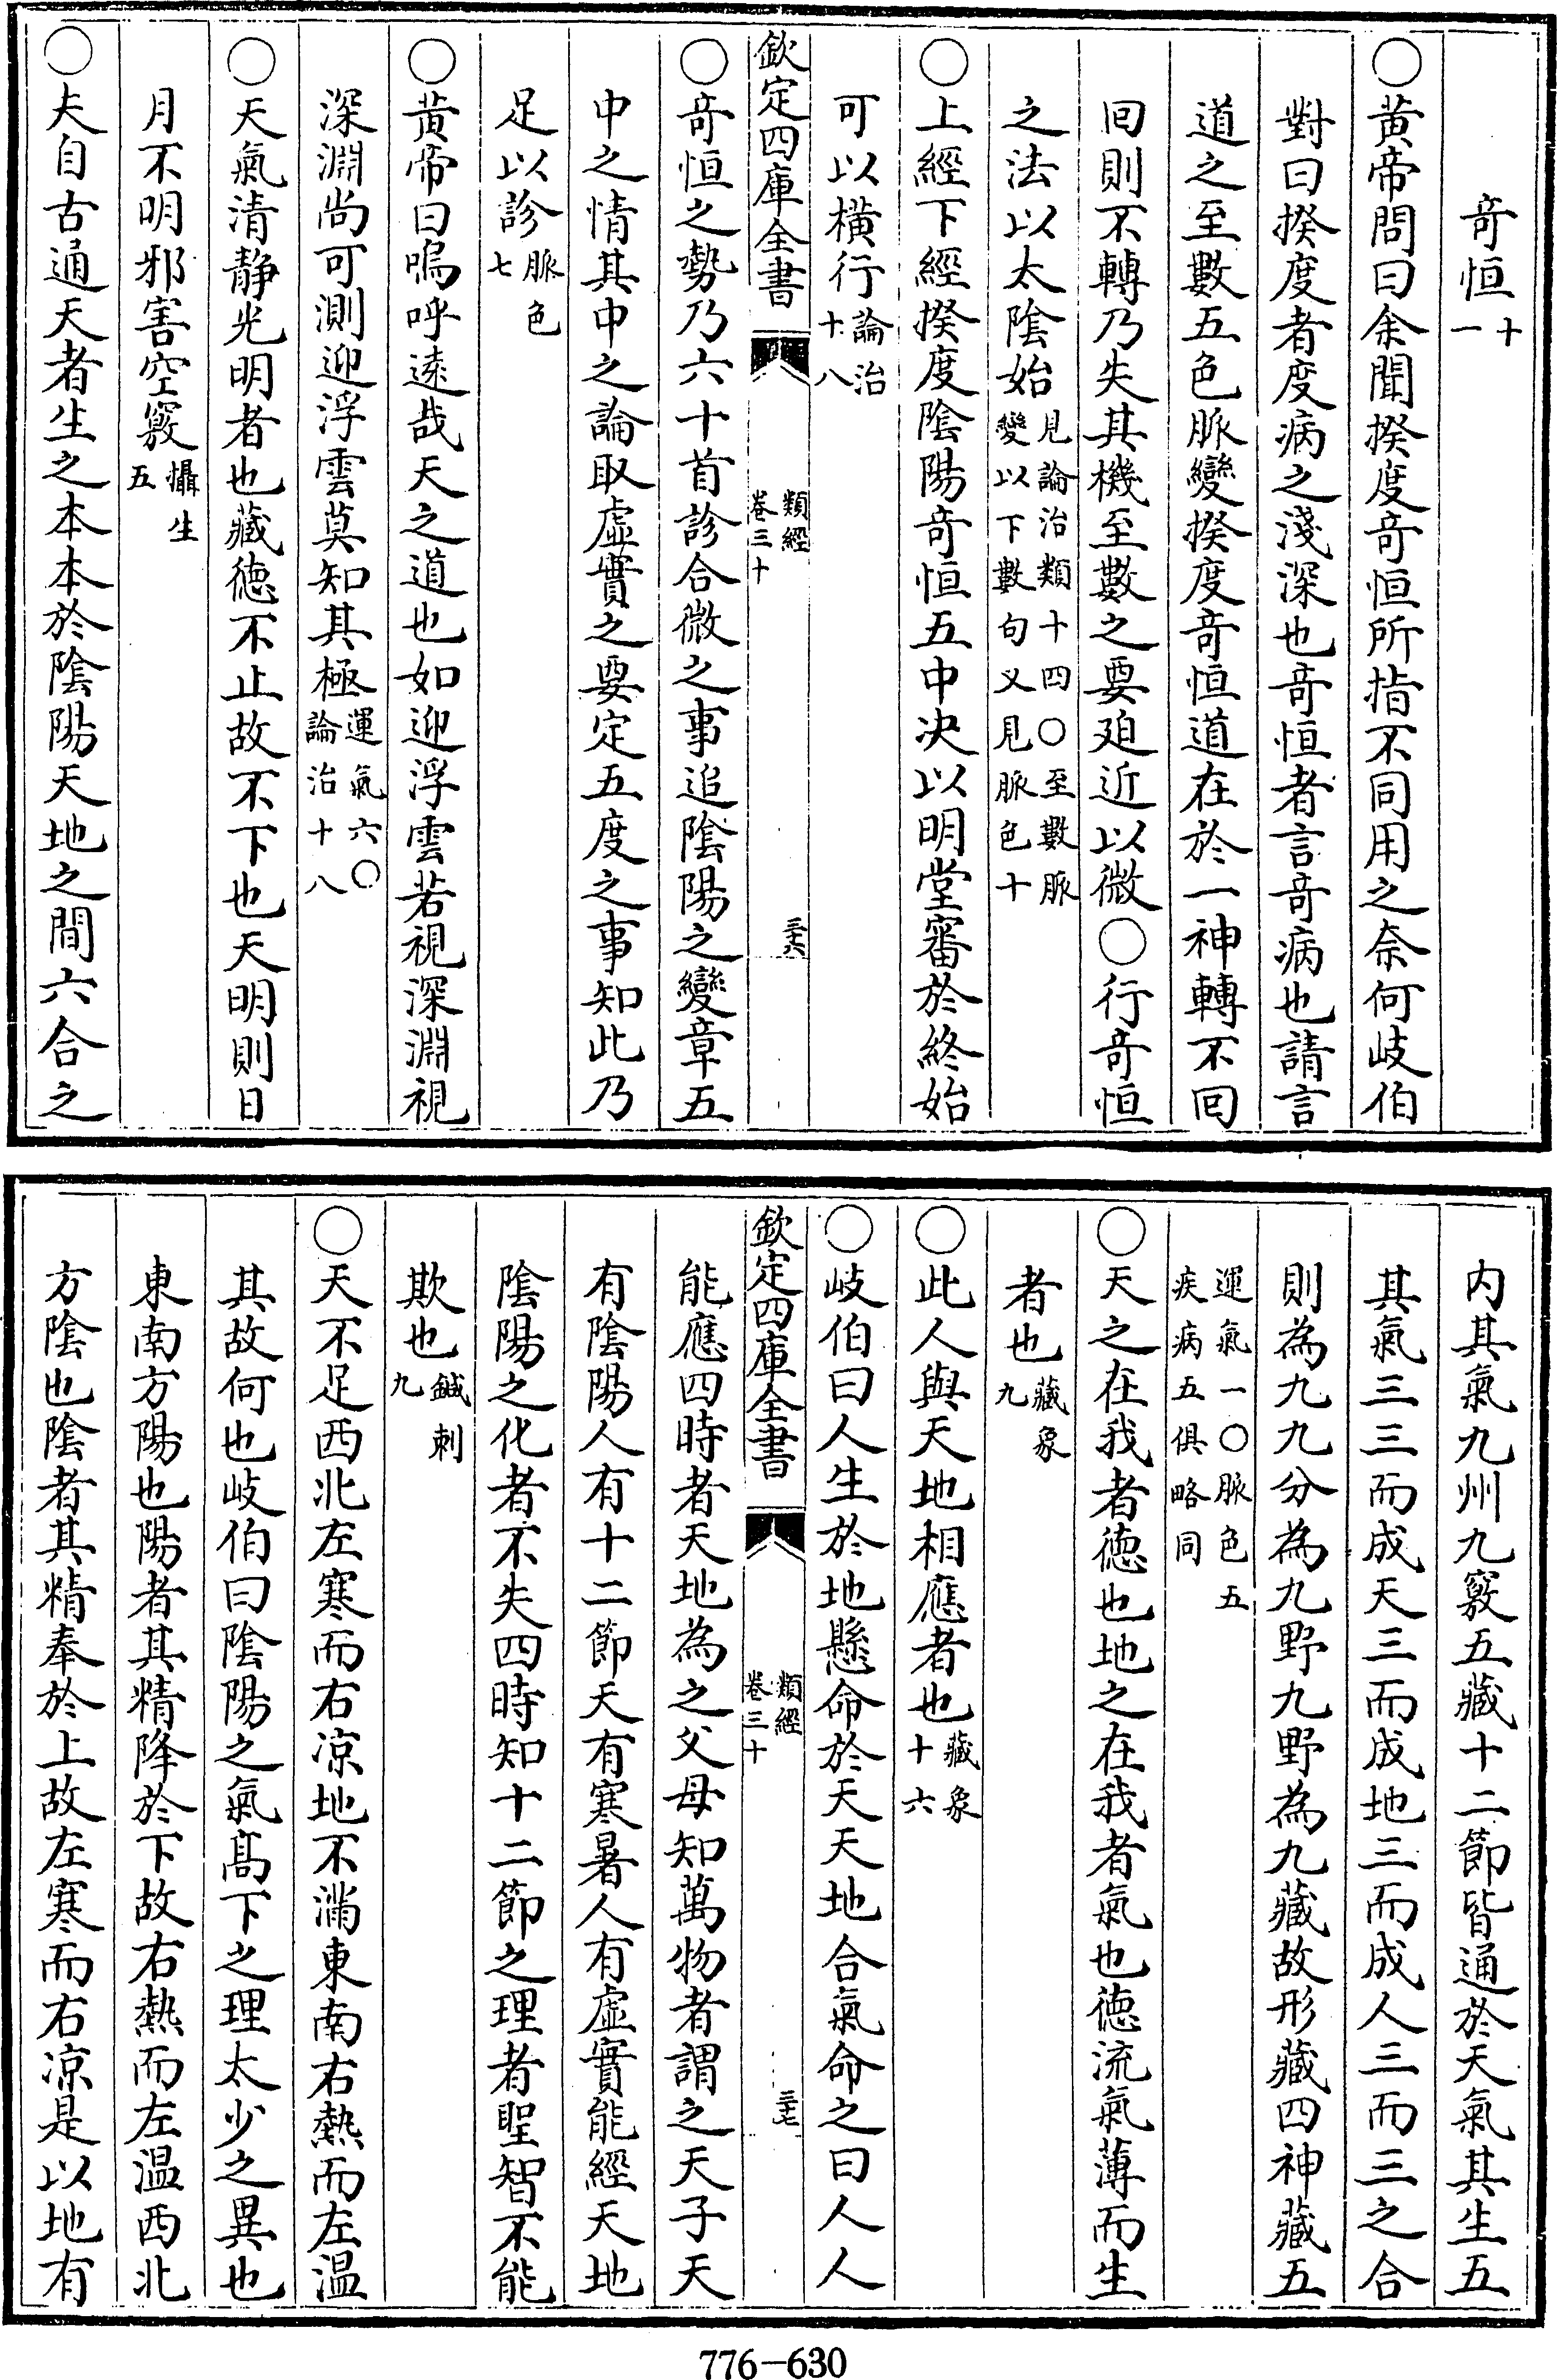 奇恒十一
○黄帝問曰余聞揆度奇恒所指不同用之奈何岐伯
對曰揆度者度病之淺深也奇恒者言奇病也請言
道之至數五色脈變揆度奇恒道在於一神轉不回
回則不轉乃失其機至數之要廹近以微○行奇恒
之法以太陰始見論治類十四○至數脈變以下數句义見脈色十
○上經下經揆度陰陽奇恒五中决以明堂審於終始
可以橫行論治十八
欽定四庫全書
類經
卷三十
三六
○奇恒之勢乃六十首診合微之事追陰陽之變章五
中之情其中之論取虛實之要定五度之事知此乃
足以診脈色七
○黄帝曰嗚呼逺哉天之道也如迎浮雲若視深淵視
深淵尚可測迎浮雲莫知其極運氣六○論治十八
○天氣清静光明者也藏德不止故不下也天明則日
月不明邪害空竅攝生五
○夫自古通天者生之本本於陰陽天地之間六合之
内其氣九州九竅五藏十二節皆通於天氣其生五
其氣三三而成天三而成地三而成人三而三之合
則為九九分為九野九野為九藏故形藏四神藏五
運氣一○脈色五疾病五俱略同
○天之在我者德也地之在我者氣也德流氣薄而生
者也藏象九
○此人與天地相應者也藏象十六
○岐伯曰人生於地懸命於天天地合氣命之曰人人
欽定四庫全書
類經
卷三十
三七
能應四時者天地為之父母知萬物者謂之天子天
有陰陽人有十二節天有寒暑人有虛實能經天地
陰陽之化者不失四時知十二節之理者聖智不能
欺也鍼刺九
○天不足西北左寒而右凉地不滿東南右熱而左温
其故何也岐伯曰陰陽之氣髙下之理太少之異也
東南方陽也陽者其精降於下故右熱而左温西北
方陰也陰者其精奉於上故左寒而右凉是以地有
776-630